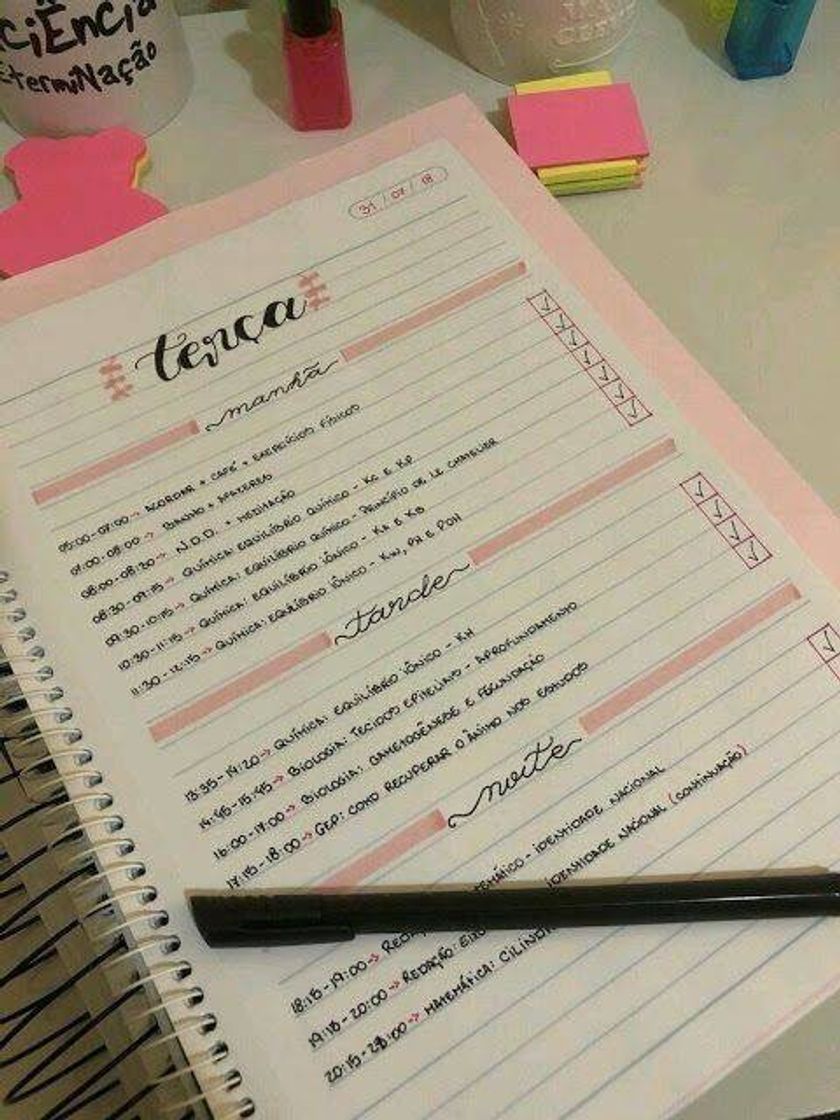 ciÊNcia
eterмiNação
31/07/18
terça
manhã
05:00-07:00→ ACORDAR + CAFÉ + EXERCÍCIOS FÍSICOS
07:00-08:00→ BANHO + AFAZERES
08:00-08:30→ N.D.D. + MEDITAÇÃO
08:30-09:15→ QUÍMICA: EQUILÍBRIO QUÍMICO - KC E KP
09:30-10:15→ QUÍMICA: EQUILÍBRIO QUÍMICO - PRINCÍPIO DE LE CHATELIER
10:30-11:15→ QUÍMICA: EQUILÍBRIO IÔNICO - KA E KB
11:30-12:15→ QUÍMICA: EQUILÍBRIO IÔNICO - KW, PH E POH
tarde
13:35-14:20→ QUÍMICA: EQUILÍBRIO IÔNICO - KH
14:45-15:45→ BIOLOGIA: TECIDO EPITELIAL - APROFUNDAMENTO
16:00-17:00→ BIOLOGIA: GAMETOGÊNESE E FECUNDAÇÃO
17:15-18:00→ GEP: COMO RECUPERAR O ÂNIMO NOS ESTUDOS
noite
18:15-19:00→ TEMÁTICO - IDENTIDADE NACIONAL
19:15-20:00→ REDAÇÃO: EIXO IDENTIDADE NACIONAL (CONTINUAÇÃO)
20:15- MATEMÁTICA: CILINDR